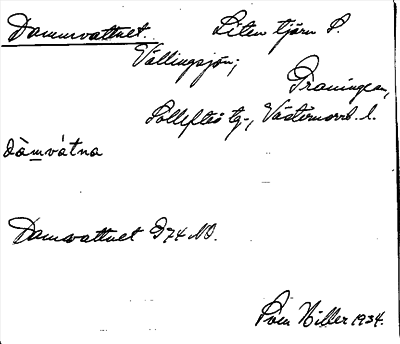 Dammvattnet. Liten tjärn S.
Vällingsjön;
Graningen,
Sollefteå tg., Västernorrl. l.
dàmvátna
Damvattnet 974 NO.
Sven Hiller 1934.